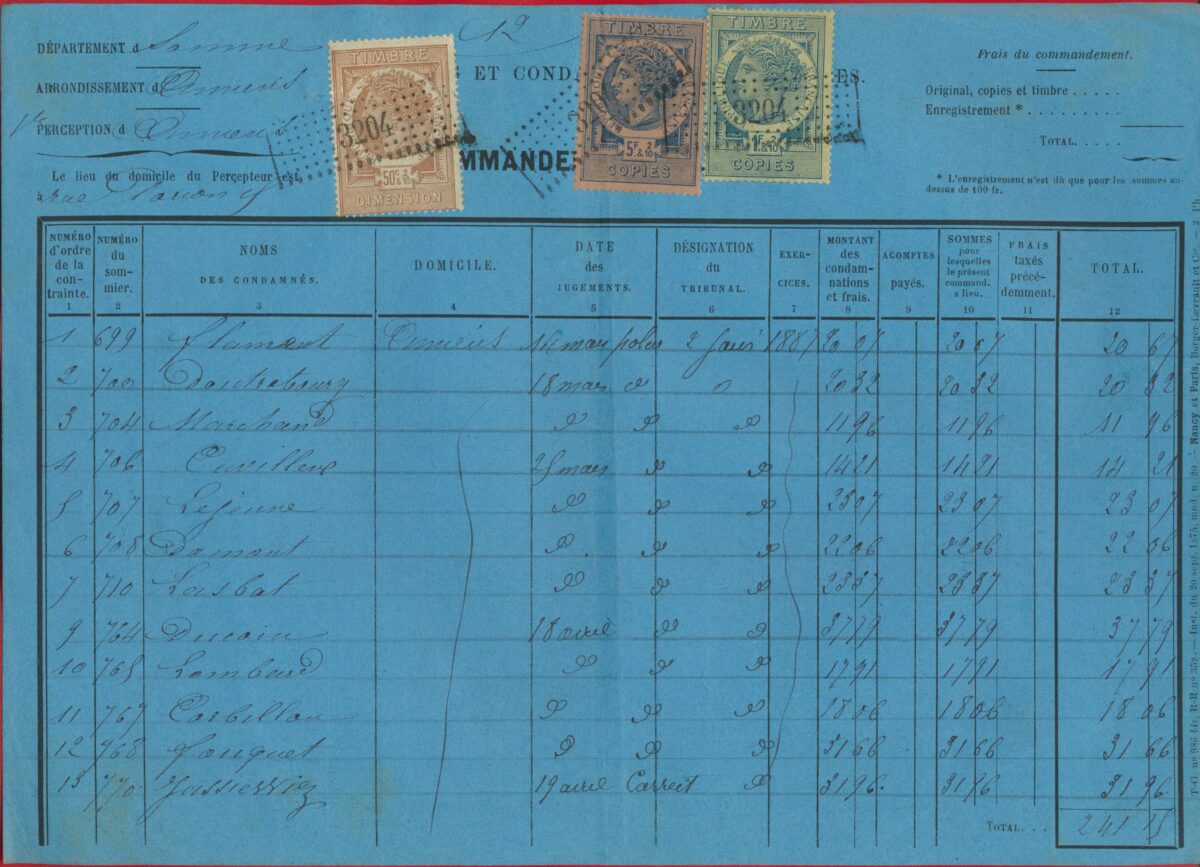 DÉPARTEMENT d Somme
12
ARRONDISSEMENT d Amiens
1re PERCEPTION d Amiens
Le lieu du domicile du Percepteur est
à rue
TIMBRE
3204
50c 2/10 &
DIMENSION
ET COND
ES.
MMANDE
TIMBRE
RÉPUBLIQUE FRANÇAISE
5F 2/10 &
COPIES
TIMBRE
RÉPUBLIQUE FRANÇAISE
3204
2F 2/10 &
COPIES
Frais du commandement.
Original, copies et timbre . . . . .
Enregistrement * . . . . .
TOTAL. . . . .
* L'enregistrement n'est dû que pour les sommes au-
dessus de 100 fr.
NUMÉRO d'ordre de la con- trainte. 1
NUMÉRO du som- mier. 2
NOMS DES CONDAMNÉS. 3
DOMICILE. 4
DATE des JUGEMENTS. 5
DÉSIGNATION du TRIBUNAL. 6
EXER- CICES. 7
MONTANT des condam- nations et frais. 8
ACOMPTES payés. 9
SOMMES pour lesquelles le présent command. a lieu. 10
FRAIS taxés précé- demment. 11
TOTAL. 12
1 699 Flament Amiens 14 mars 20 67 20 67
2 700 18 mars 20 32 20 32 20 32
3 704 Marchand 11 96 11 96 11 96
4 706 mars 14 21 14 21 14 21
5 707 Lejeune 23 07 23 07 23 07
6 708 Damont 22 06 22 06 22 06
7 710 Lasbat 23 37 23 37 23 37
9 764 Ducoin 18 avril 37 79 37 79 37 79
10 765 Lombard 17 91 17 91 17 91
11 767 Corbillon 18 06 18 06 18 06
12 768 Fouquet 31 66 31 66 31 66
13 770 19 avril Correct 31 96. 31 96 31 96
TOTAL. . . 241 15